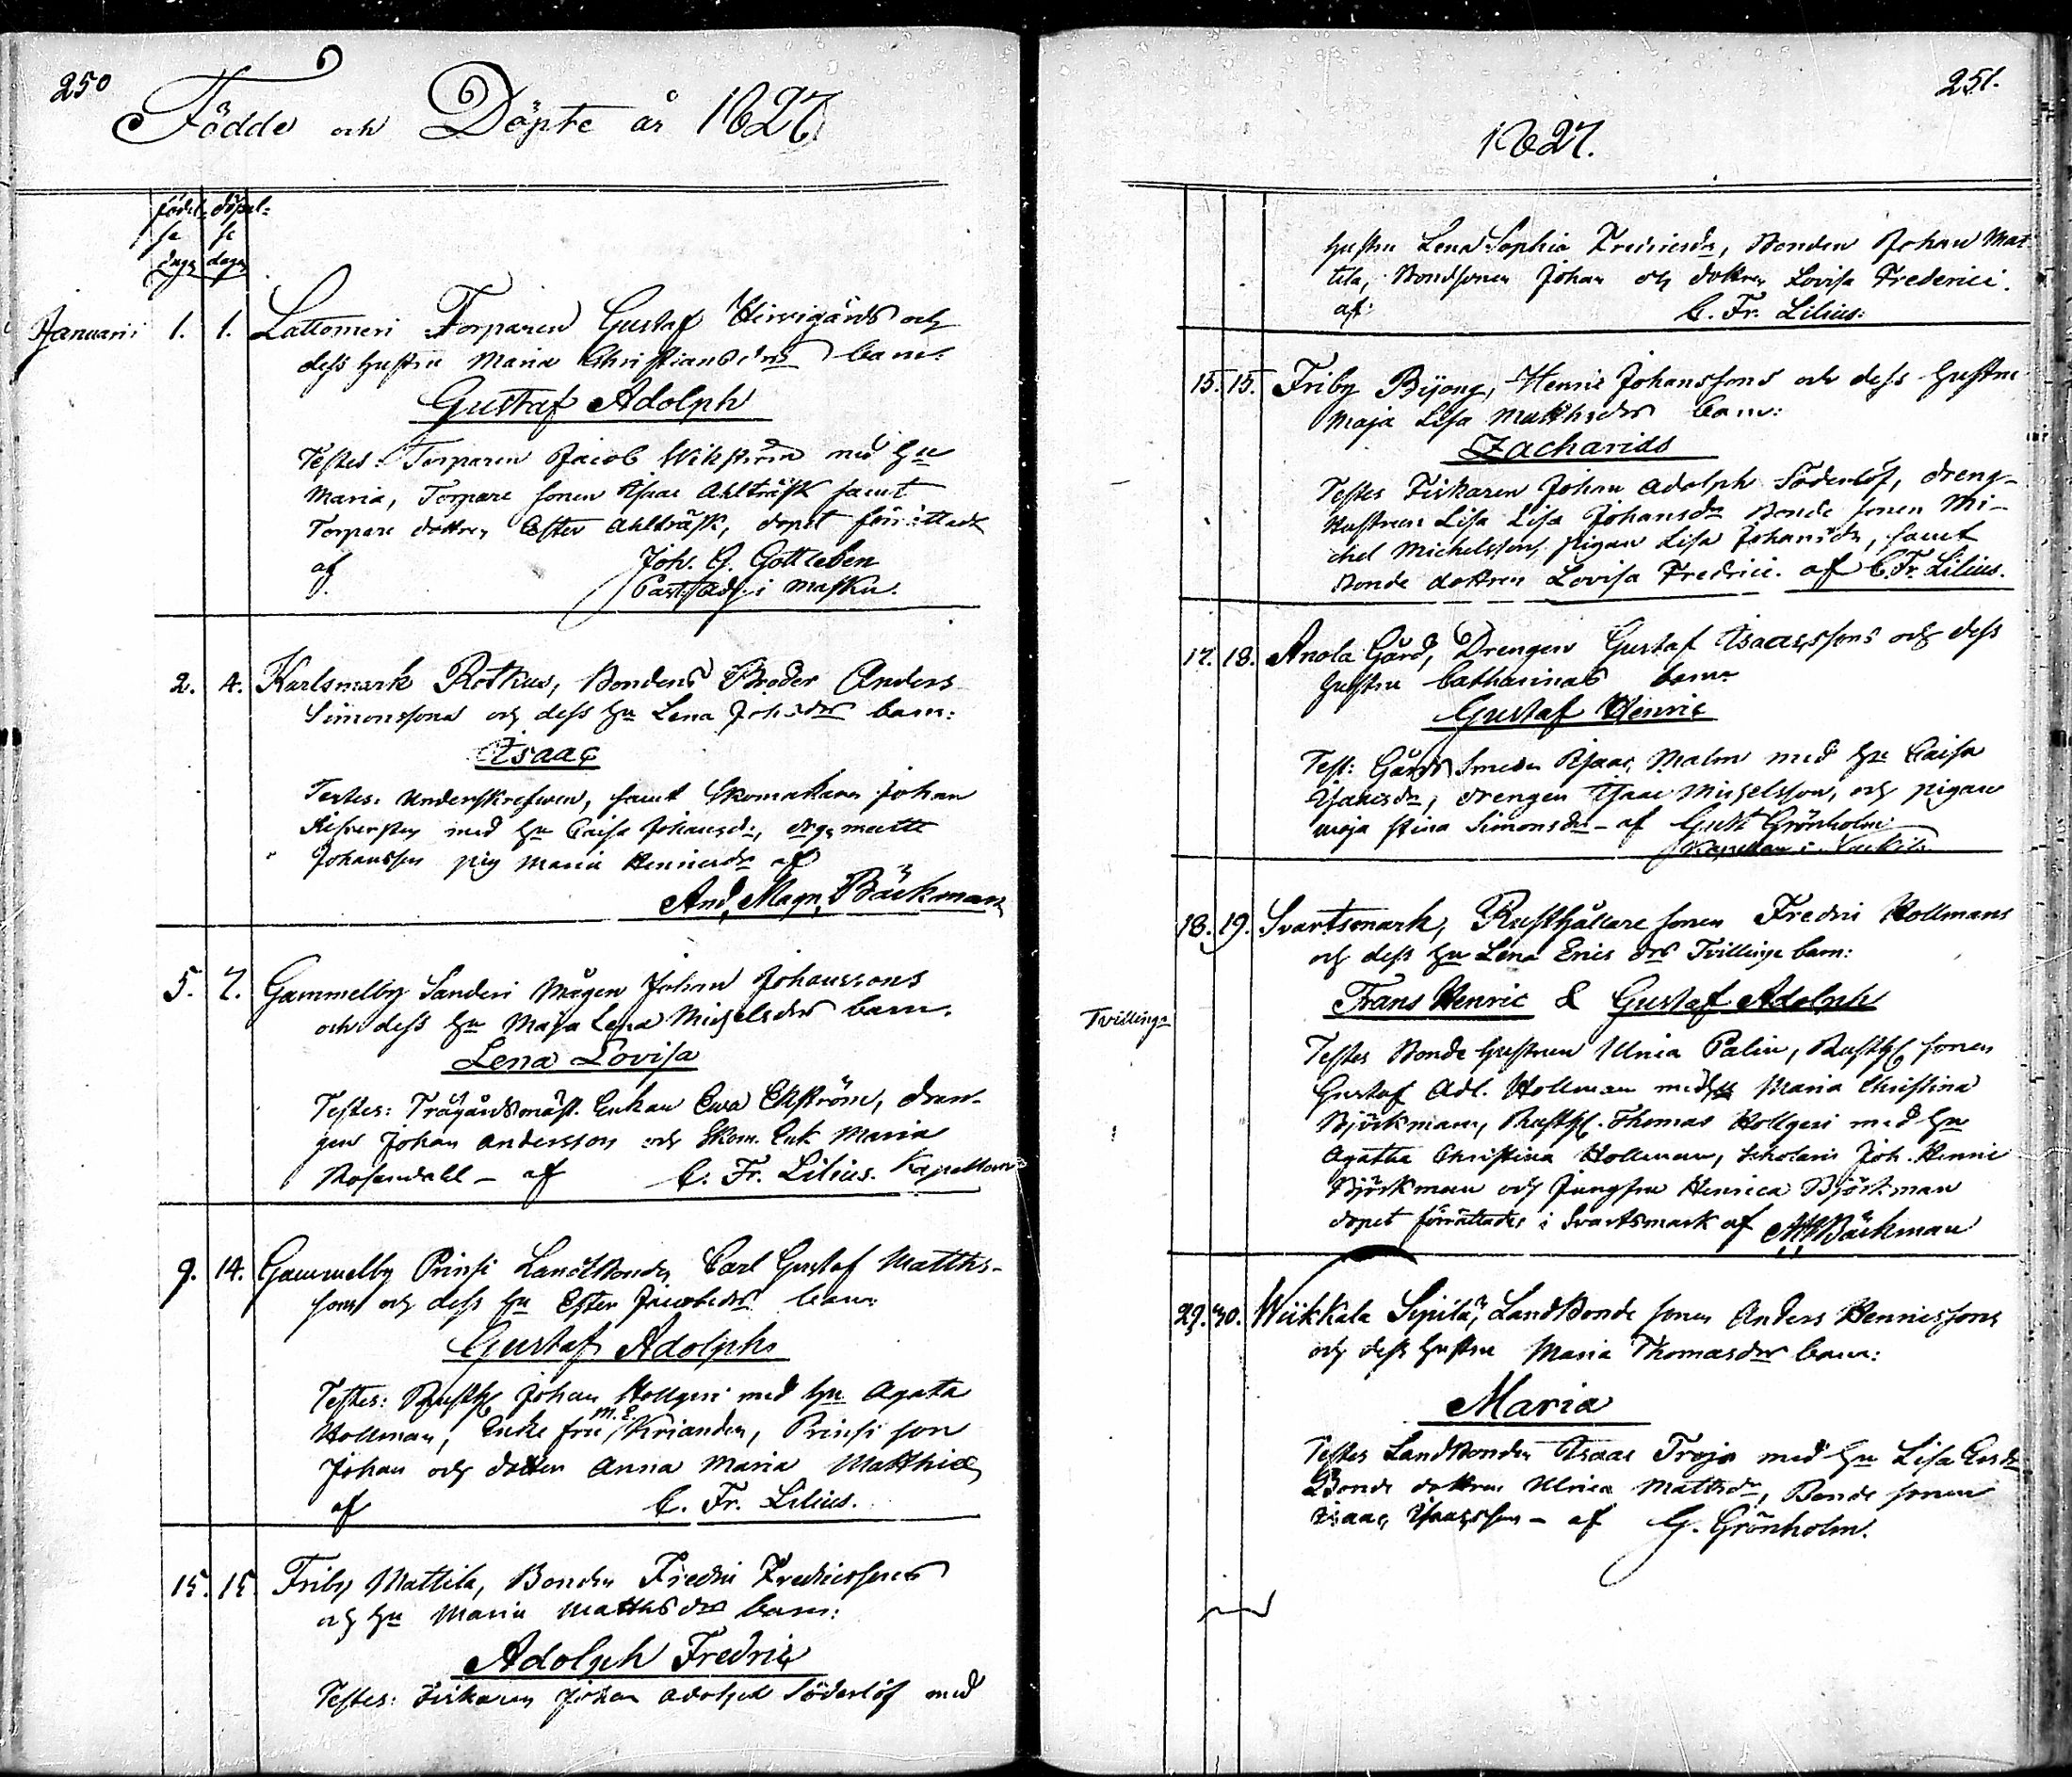 250
Födde och Döpte år 1827
födel= döpel=
se se
dag dagen
Januarii 1. 1. Lattomeri Torparen Gustaf Hirvigårds och
dess hustru Maria Christiansdrs barn:
Gustaf Adolph
Testes: Torparen Jacob Wikström med hu
Maria, Torpare sonen Isaac Ahlträsk samt
Torpare dottren Ester Ahlträsk, dopet förrättadt
af Joh. G. Gottleben
Past. Adj. i Masku.
2. 4. Karlsmark Rotkus, Bondens Broder Anders
Simonssons och dess hu Lena Johsdrs barn:
Isaac
Testes: Underskrefwen, samt Skomakaren Johan
med hu Caisa Johansdr, Matts
Johansson pig Maria Henricsdr af
And. Magn. Bäckman
5. 7. Gammelby Sanderi Mågen Johan Johanssons
och dess hu Maja Lena Michelsdrs barn.
Lena Lovisa
Testes: Trägårdsmäst. Enkan Ewa Ekström, dren-
gen Johan Andersson och Skom. Enk. Maria
Rosendahl – af C. Fr. Lilius. Kapellan
9. 14. Gammelby Prinsi Landtbonden Carl Gustaf Matths-
sons och dess hu Ester Jacobsdrs barn:
Gustaf Adolph
Testes: Rusth. Johan Hollgeri med hu Agata
M. E.
Hollman, Enke fru Krianden, Prinsi son
Johan och dotter Anna Maria Matthiæ
af C. Fr. Lilius.
15. 15. Friby Mattila, Bonden Fredric Fredricssons
och hu Maria Matthsdrs barn:
Adolph Fredric
Testes: Fiskaren Johan Adolph Söderlöf med
251.
1827.
hustru Lena Sophia Fredricsdr, Bonden Johan Mat
tila, Bondsonen Johan och dottren Lovisa Frederici.
af: C. Fr. Lilius.
15. 15. Friby Böjong, Henric Johanssons och dess hustru
Maja Lisa Matthsdrs barn:
Zacharias
Testes Fiskaren Johan Adolph Söderlöf, dreng-
hustrun Lisa Lisa Johansdr Bonde sonen Mi-
chel Michelsson, pigan Lisa Johansdr, samt
Bonde dottren Lovisa Fredrici. af C. Fr. Lilius.
17. 18. Anola Gård, Drengen Gustaf Isaacssons och dess
hustru Catharinas barn
Gustaf Henric
Test: Gårds Smeden Isaac Malm med hu Caisa
Isaacsdr, drengen Isaac Michelsson, och pigan
Maja Stina Simonsdr – af Gust Grönholm
Kapellan i Nackila
18. 19. Svartsmark, Rusthållare sonen Fredric Hollmans
och dess hu Lena Erics drs Tvillinge barn:
Frans Henric & Gustaf Adolph
Tvillingar
Testes Bonde hustrun Ulrica Palin, Rusth. sonen
Gustaf Adl. Hollman med hu Maria Christina
Björkman, Rusth. Thomas Hollgeri med hu
Agatha Christina Hollman, Scholaris Joh. Henric
Björkman och Jungfru Henrica Björkman
dopet förrättades i Svartsmark af AMBäckman
29. 30. Wiikkala Sipilä, Landtbonde sonen Anders Henricssons
och dess hustru Maria Thomasdrs barn:
Maria
Testes Landtbonden Isaac Troja med hu Lisa Ersdr
Bonde dottren Ulrica Mattsdr, Bonde sonen
Isaac Isaacsson – af G. Grönholm.